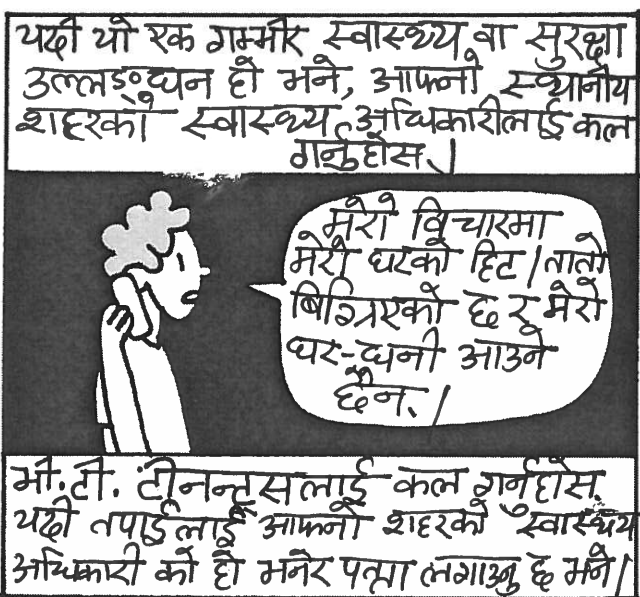 यदी यो एक गम्मीर स्वास्थ्य वा सुरक्षा
उल्लङ्घन हो भने, आफ्नो स्थ्यानीय
शहरको स्वास्थ्य अधिकारीलाई कल
गर्नुहोस्।
मेरो विचारमा
मेरो घरको हिट/तातो
बिग्रिएको छ र मेरो
घर-धनी आउने
छैन।
भी.टी. टीनन्ट्सलाई कल गर्नुहोस्
यदी तपाईलाई आफ्नो शहरको स्वास्थ्य
अधिकारी को हो भनेर पत्ता लगाउनु छ भने।